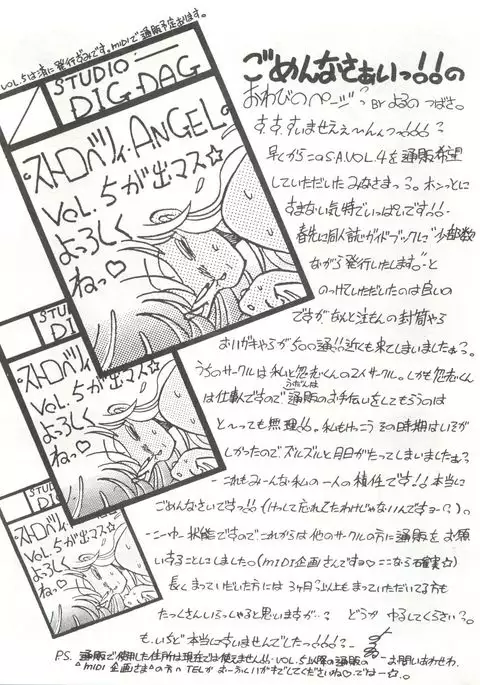 VOL.5は済に発行ずみです。MIDIで通販予定おります。
STUDIO
DIG・DAG
ストロベリィ・ANGEL
VOL.5が出マス☆
よっろしく
ねっ♡
ごめんなさぁいっ!!の
おわびのページ? BY よるの つばさ。
すすすいませえぇ~んんっ!!!?
早くからこのS.A.VOL.4を通販希望
していただいたみなさまっ?。ホンっとに
すまない気持でいっぱいですっ!!
春先に同人誌ガイドブックに“少部数
ながら発行いたします。”と
のっけていただいたのは良いの
ですがなんと注もんの封筒やら
おハガキやらが500通!!近くも来てしまいましたぁ?。
うちのサークルは私と忽忘くんの2人サークル。しかも忽忘くん
は仕事人ですので通販のお手伝いをしてもらうのは
と~っても無理!!。私もけっこうその時期はいそが
しかったのでズルズルと月日がたってしまいましたぁっ?
これもみーんな私の一人の責任です!!本当に
ごめんなさいですっ!!(けっして忘れてたわけじゃないんですョー?)。
こーゆー状態ですのでこれからは他のサークルの方に通販をお願
いすることにしました。(MIDI企画さんですョ♡ここなら確実☆)
長くまっていただいた方には3ヶ月以上もまっていただいてる方も
たっくさんいらっしゃると思いますが…? どうかゆるしてくださぃ?。
も、いちど本当にすいませんでしたっ!!!?
P.S. 通販で使用した住所は現在では使えません!!・VOL.5以降の通販の お問いあわせわ、
MIDI企画さまの方へTELかおーふくハガキでしてくださいね♡ではー
STUDIO
DI
ストロベリィ・A
VOL.5が出
よっろしく
ねっ♡
STUDIO
DI
ストロベリィ
VOL.5が
よっろしく
ねっ♡